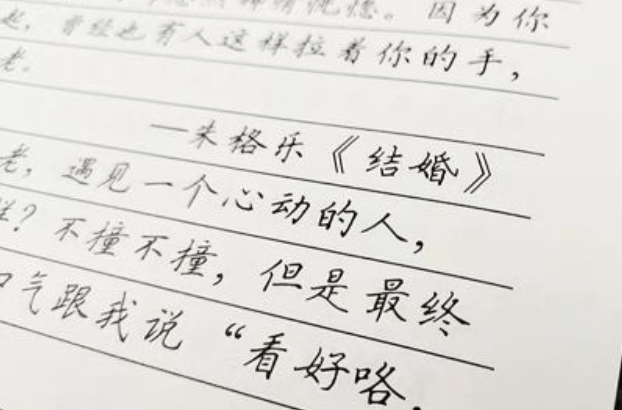 因为你
起，曾经也有人这样拉着你的手，
老。
—朱格乐《结婚》
老，遇见一个心动的人，
？不撞不撞，但是最终
口气跟我说“看好咯，